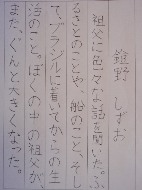 鎧野　しずお
祖父に色々な話を聞いた。ふ
るさとのことや、船のこと、そし
て、ブラジルに着いてからの生
活のこと。ぼくの中の祖父が
また、ぐんと大きくなった。